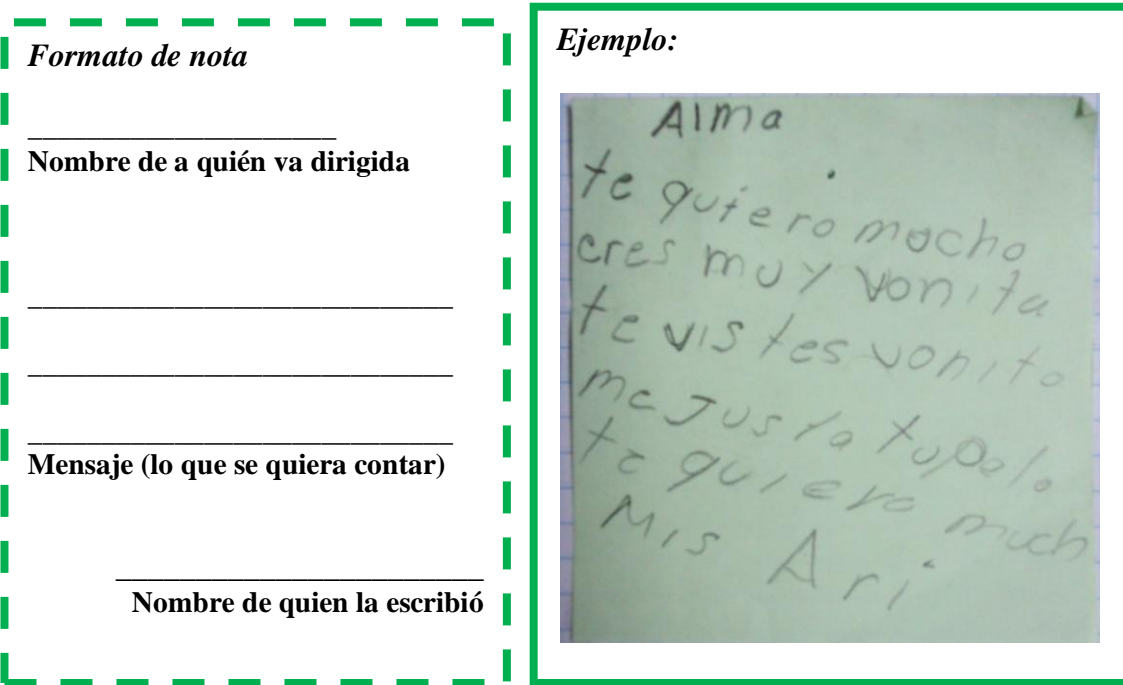 Formato de nota
_____________________
Nombre de a quién va dirigida
_____________________________
_____________________________
_____________________________
Mensaje (lo que se quiera contar)
_________________________
Nombre de quien la escribió
Ejemplo:
Alma
te quiero mocho
eres muy vonita
te vistes vonito
me Justa tu pelo
te quiero much
Mis Ari